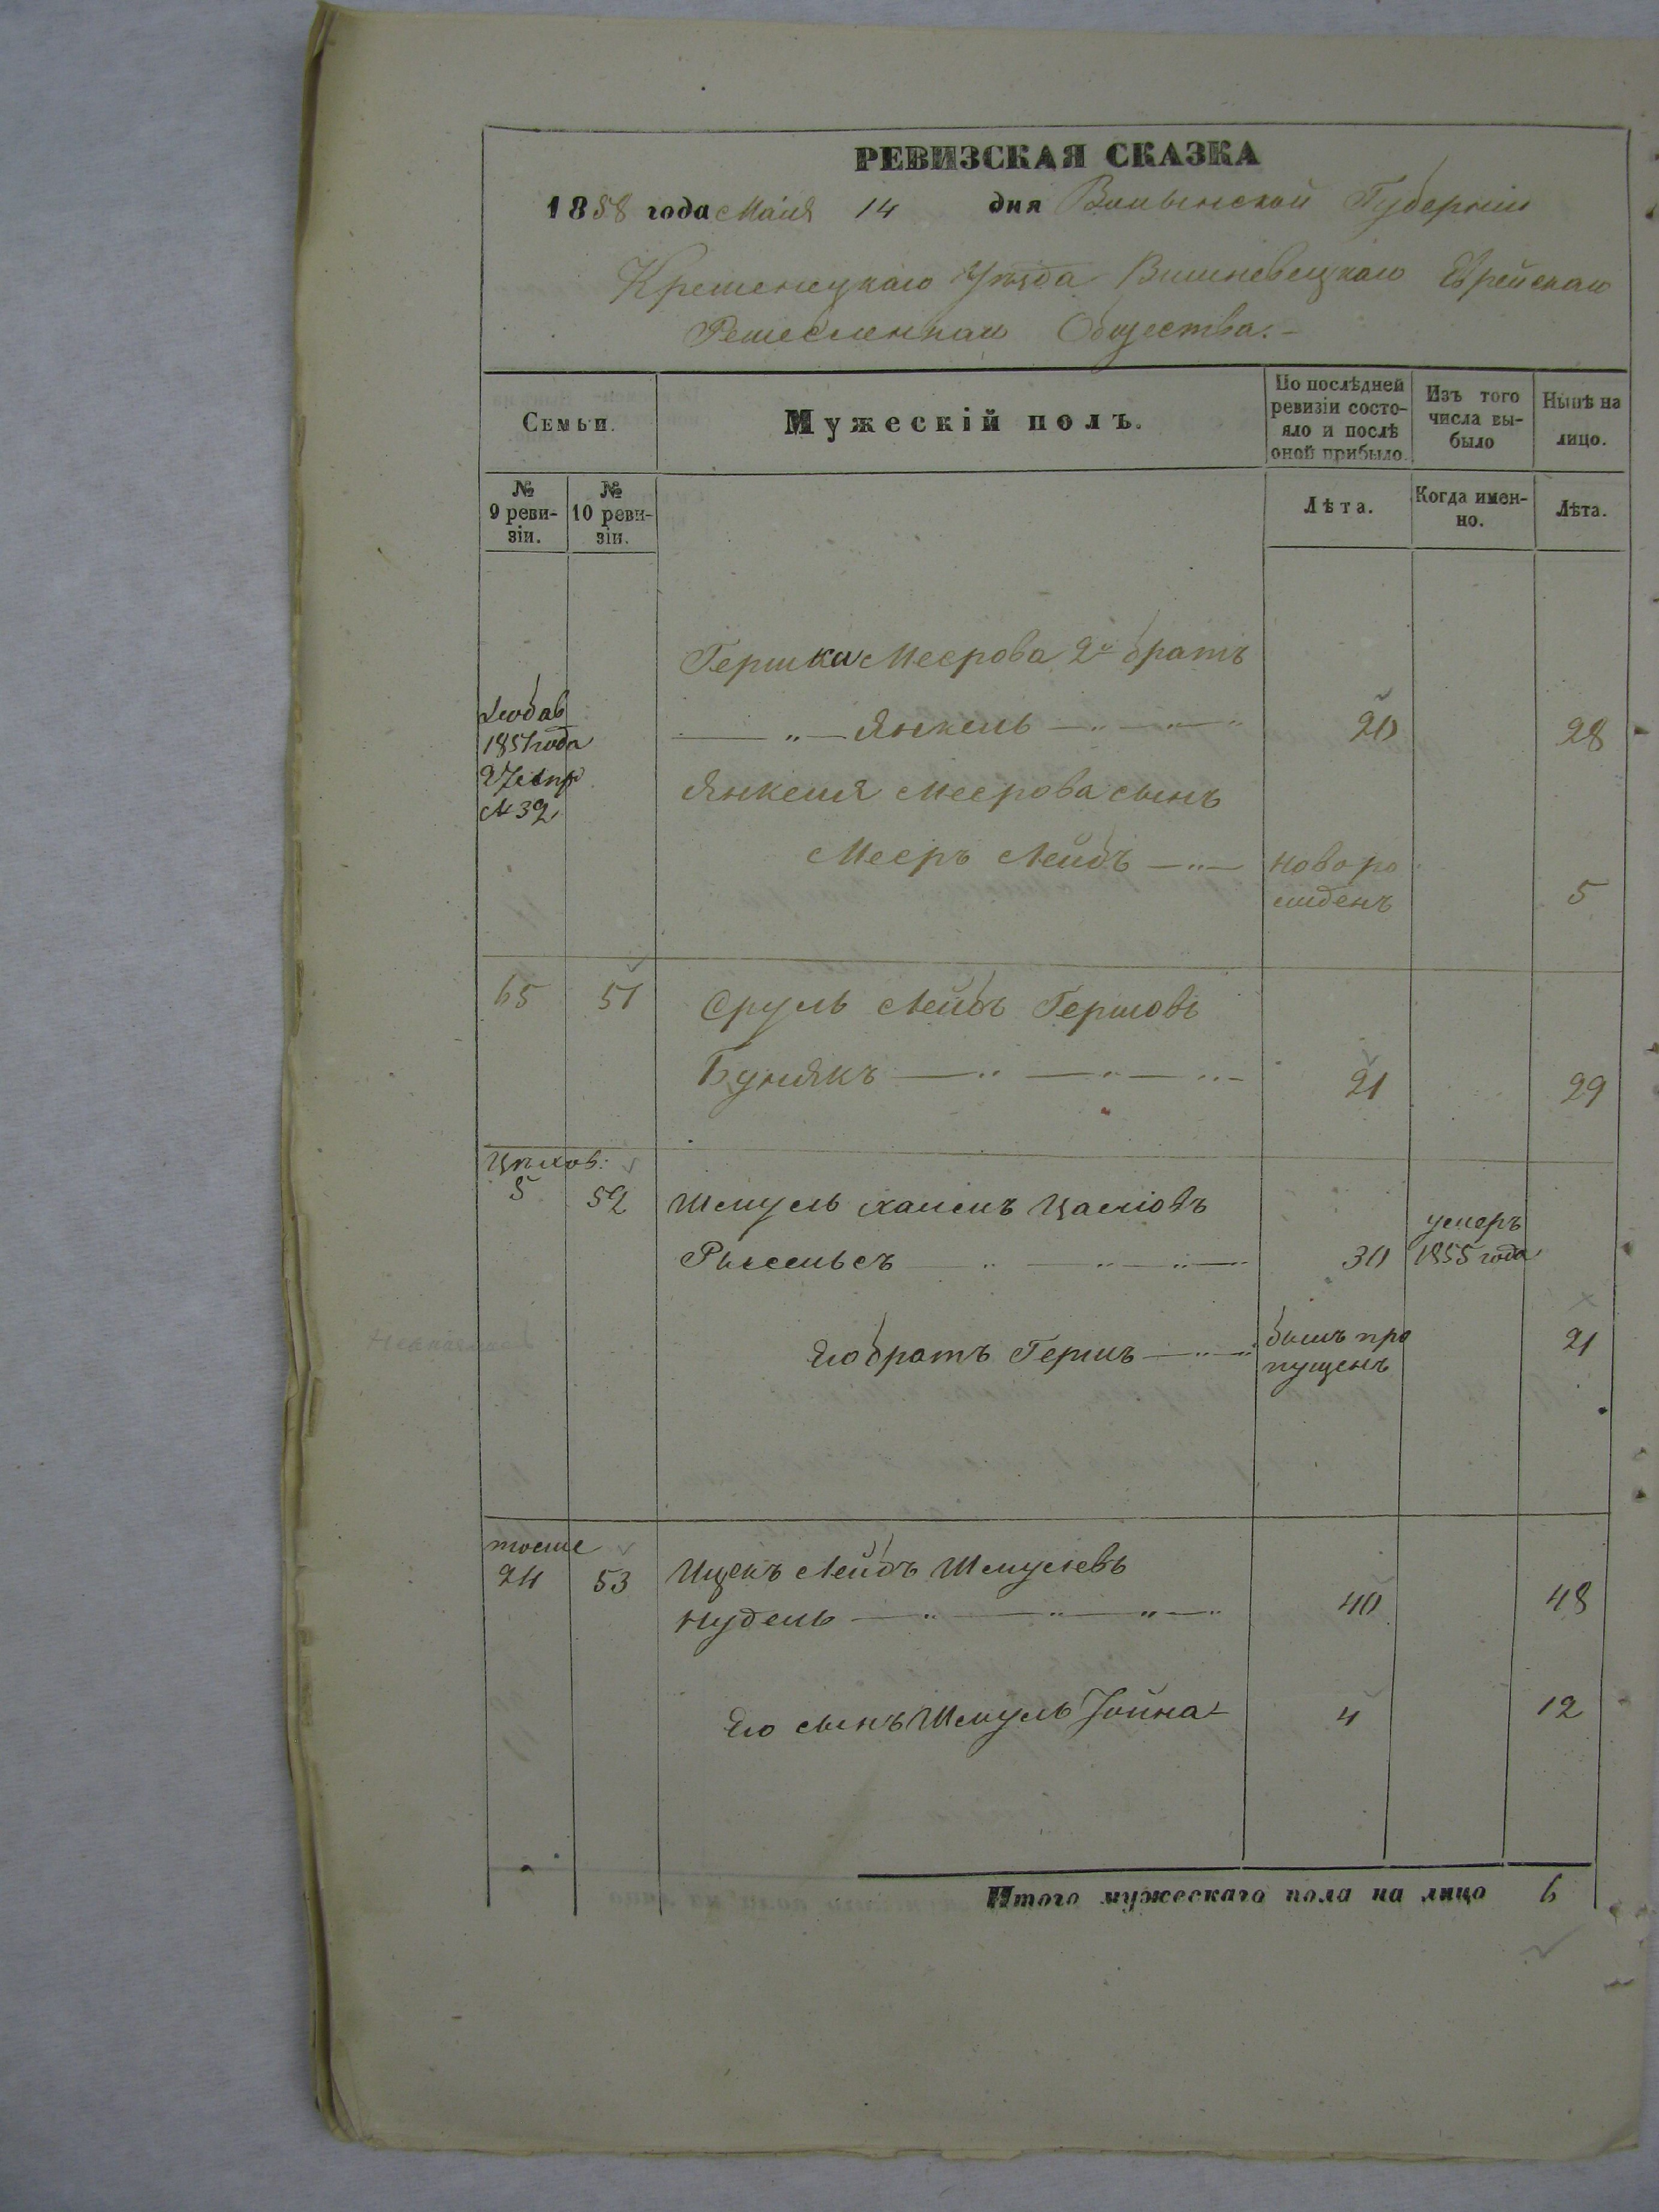 РЕВИЗСКАЯ СКАЗКА
1858 года Маія 14 дня Волынской Губерніи
Кременецкаго Уѣзда Вишневецкаго Еврейскаго
Ремесленнаго Общества.
Семьи.
Мужескій полъ.
По послѣдней ревизіи состояло и послѣ оной прибыло.
Изъ того числа выбыло
Нынѣ на лицо.
№ 9 ревизіи.
№ 10 ревизіи.
Лѣта.
Когда именно.
Лѣта.
Гершка Меерова 2й братъ
1851 года
№ 32
Янкель 20 28
Янкеля Меерова сынъ
Мееръ Лейбъ новорожденъ 5
65 51 Сруль Лейбъ Гершовъ
Бунякъ 21 29
Цехов:
5 52 Шмуль Хаимъ
30 умеръ 1855 года
Его братъ Гершъ былъ пропущенъ 21
тоже
24 53 Ицекъ Лейбъ Шмулевъ
Нудель 40 48
Его сынъ Шмуль Іойна 4 12
Итого мужескаго пола на лицо 6